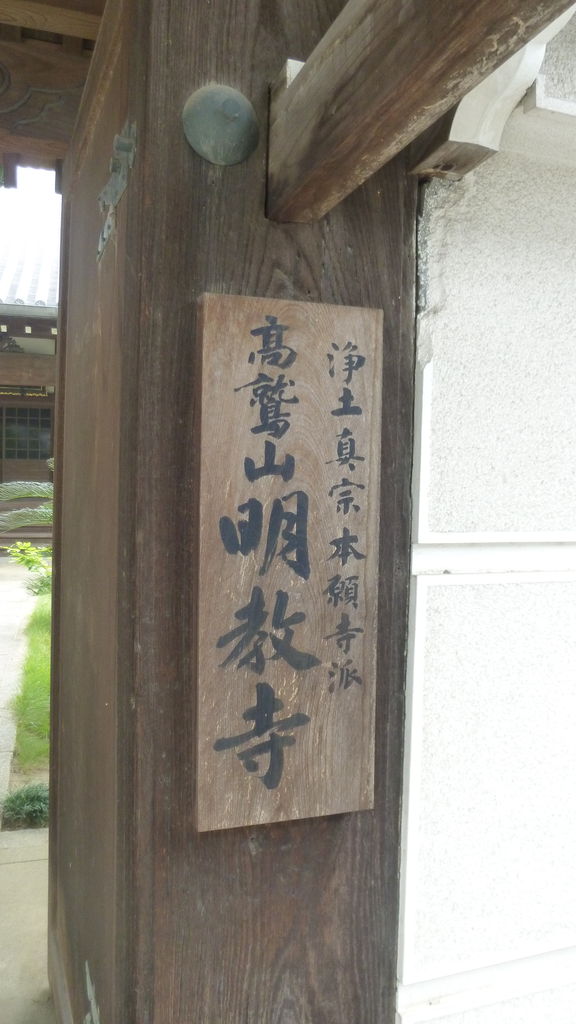 浄土真宗本願寺派
高鷲山明教寺